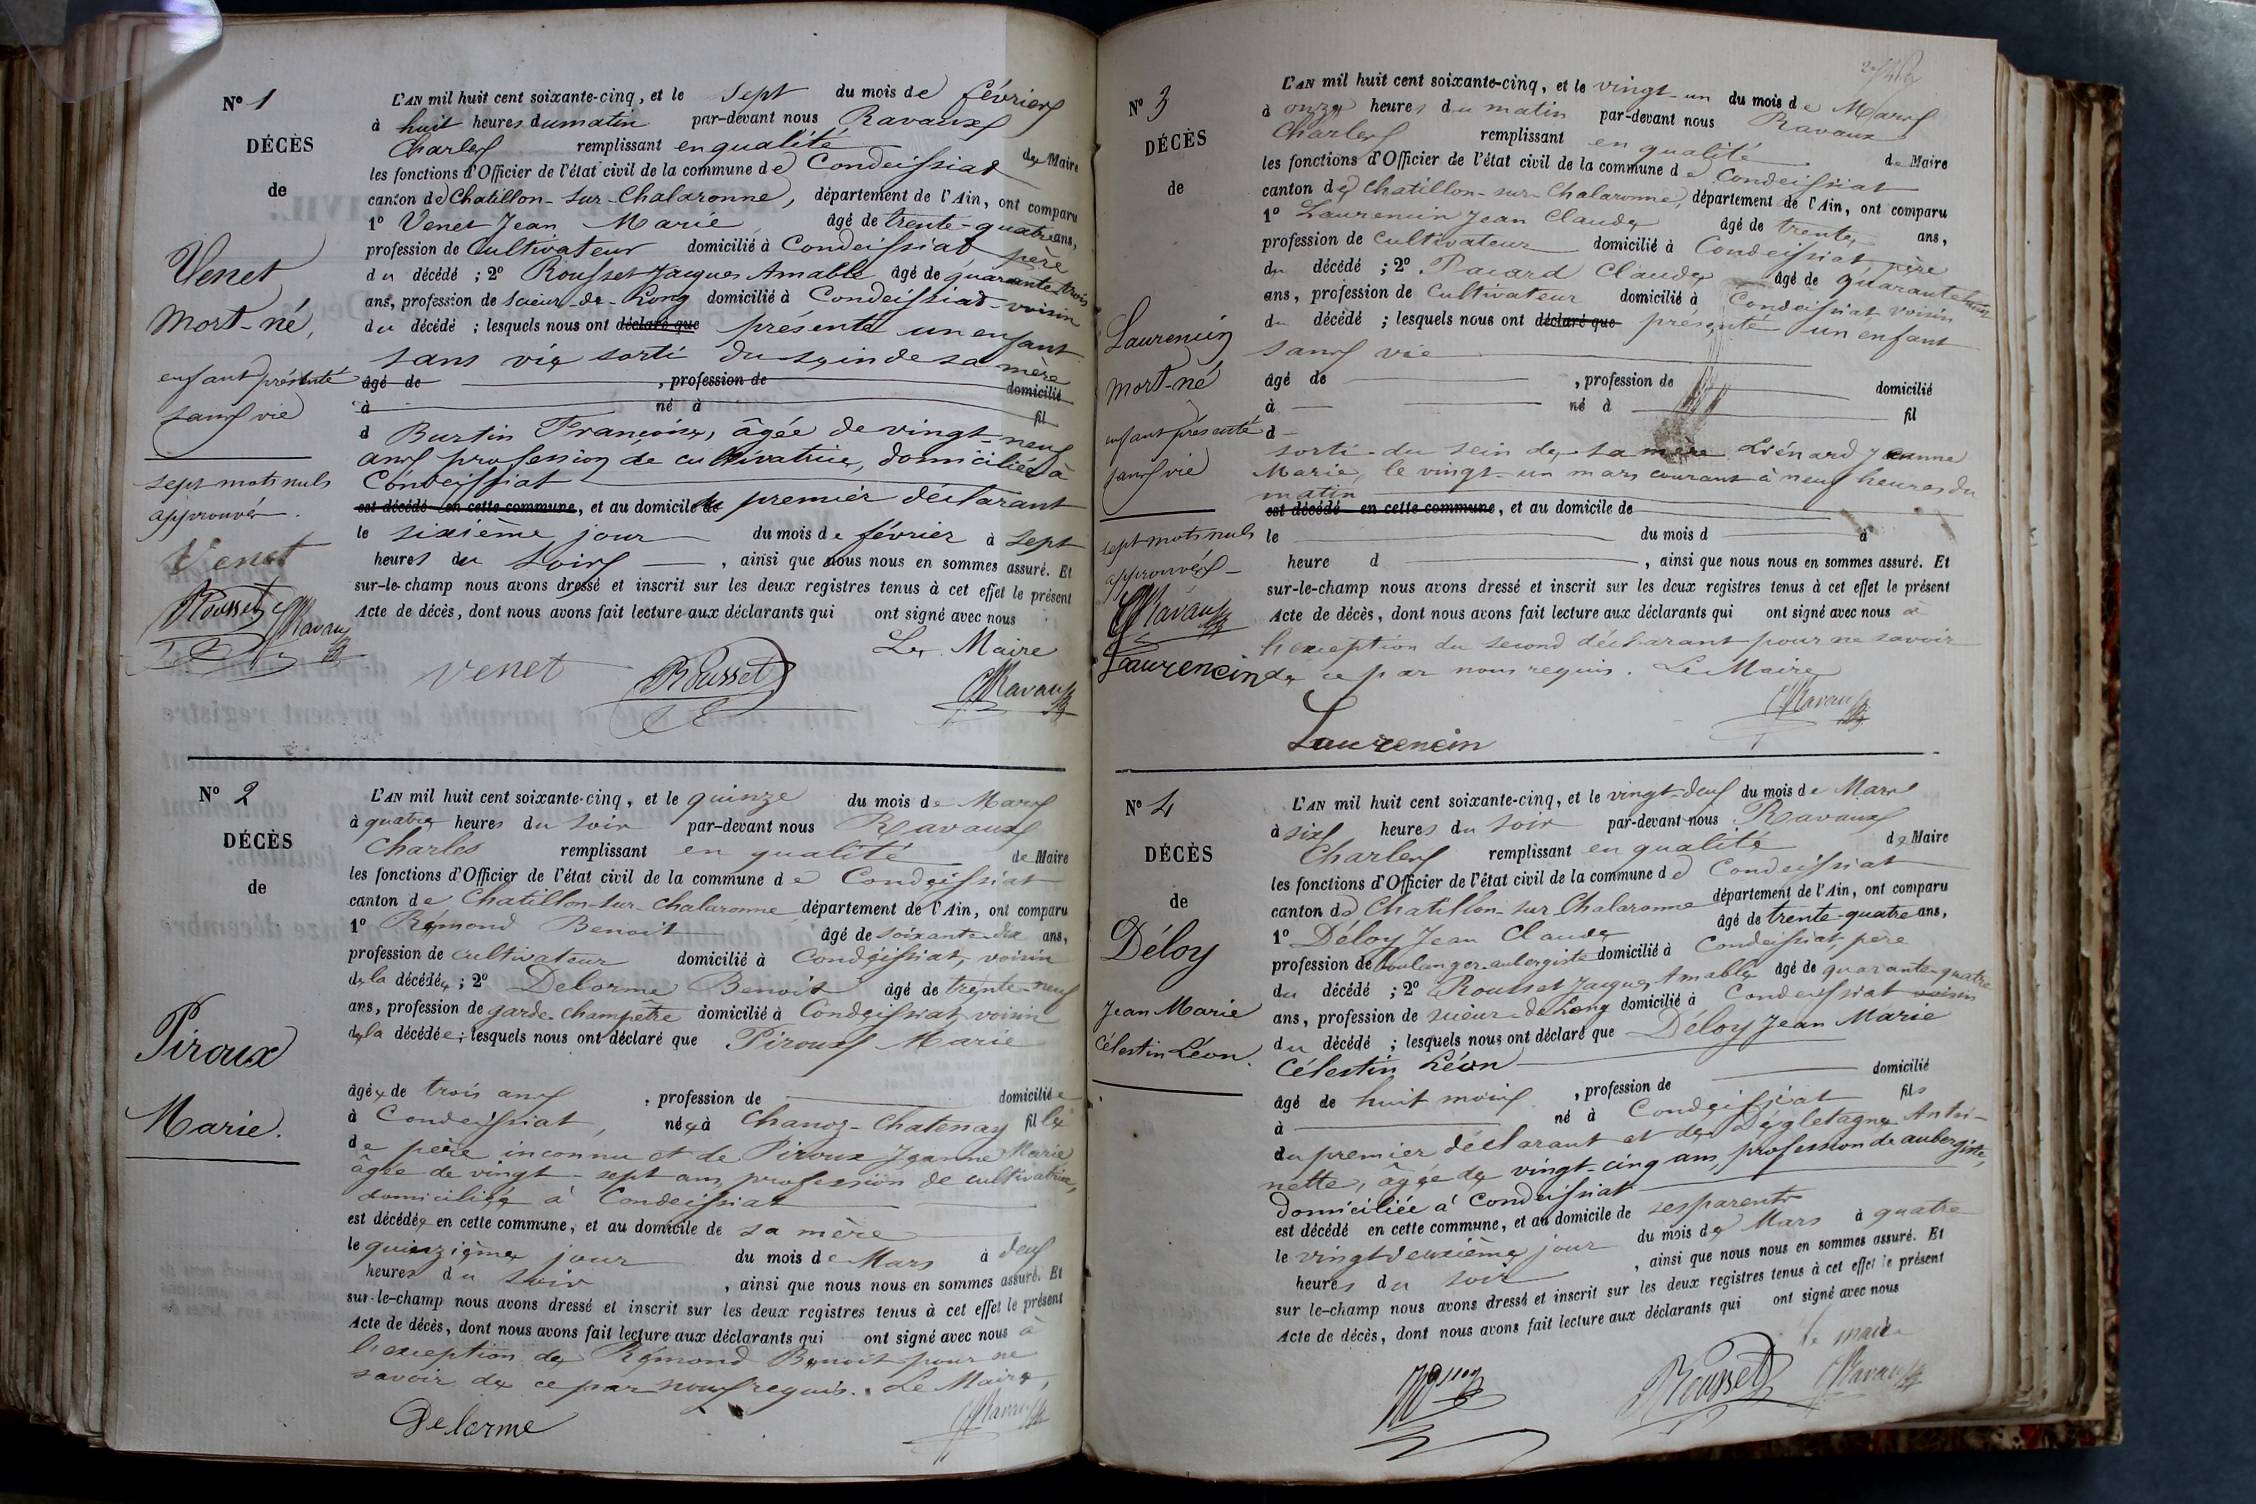 N° 1
DÉCÈS
de
Venet
Mort-né,
enfant présenté
sans vie
sept mots nuls
approuvés.
Venet
Rousset Ravaux
L'AN mil huit cent soixante-cinq, et le sept du mois de février
à huit heures du matin par-devant nous Ravaux
Charles remplissant en qualité de Maire
les fonctions d'Officier de l'état civil de la commune de Condeissiat
canton de Chatillon-sur-Chalaronne, département de l'Ain, ont comparu
1° Venet Jean Marie âgé de trente-quatre ans,
profession de Cultivateur domicilié à Condeissiat père
du décédé ; 2° Rousset Jacques Amable âgé de quarante trois
ans, profession de Scieur-de-Long domicilié à Condeissiat voisin
du décédé ; lesquels nous ont déclaré que présenté un enfant
sans vie sorti du sein de sa mère
âgé de , profession de domicilié
à né à fil
d Burtin Françoise, âgée de vingt-neuf
ans profession de cultivatrice, domiciliée à
Condeissiat
est décédé en cette commune, et au domicile du premier déclarant
le sixième jour du mois de février à sept
heures du soir , ainsi que nous nous en sommes assuré. Et
sur-le-champ nous avons dressé et inscrit sur les deux registres tenus à cet effet le présent
Acte de décès, dont nous avons fait lecture aux déclarants qui ont signé avec nous
Le Maire
Venet Rousset Ravaux
N° 2
DÉCÈS
de
Piroux
Marie.
L'AN mil huit cent soixante-cinq, et le quinze du mois de Mars
à quatre heures du soir par-devant nous Ravaux
Charles remplissant en qualité de Maire
les fonctions d'Officier de l'état civil de la commune de Condeissiat
canton de Chatillon-sur-Chalaronne département de l'Ain, ont comparu
1° Rémond Benoit âgé de soixante-dix ans,
profession de cultivateur domicilié à Condeissiat, voisin
de la décédée ; 2° Delorme Benoit âgé de trente-neuf
ans, profession de garde-champêtre domicilié à Condeissiat voisin
de la décédée ; lesquels nous ont déclaré que Piroux Marie
âgée de trois ans , profession de domiciliée
à Condeissiat, née à Chanoz-Chatenay fille
de père inconnu et de Piroux Jeanne Marie
âgée de vingt-sept ans, profession de cultivatrice,
domiciliée à Condeissiat
est décédée en cette commune, et au domicile de sa mère
le quinzième jour du mois de Mars à deux
heures du soir , ainsi que nous nous en sommes assuré. Et
sur-le-champ nous avons dressé et inscrit sur les deux registres tenus à cet effet le présent
Acte de décès, dont nous avons fait lecture aux déclarants qui ont signé avec nous à
l'exception de Rémond Benoit pour ne
savoir de ce par nous requis. Le Maire,
Delorme Ravaux
N° 3
DÉCÈS
de
Laurencin
mort-né
enfant présenté
sans vie
sept mots nuls
approuvés
Ravaux
Laurencin
L'AN mil huit cent soixante-cinq, et le vingt-un du mois de Mars
à onze heures du matin par-devant nous Ravaux
Charles remplissant en qualité de Maire
les fonctions d'Officier de l'état civil de la commune de Condeissiat
canton de Chatillon-sur-Chalaronne, département de l'Ain, ont comparu
1° Laurencin Jean Claude âgé de trente ans,
profession de Cultivateur domicilié à Condeissiat père
du décédé ; 2° Pacard Claude âgé de quarante huit
ans, profession de Cultivateur domicilié à Condeissiat voisin
du décédé ; lesquels nous ont déclaré que présenté un enfant
sans vie
âgé de , profession de domicilié
à né à fil
d
sorti du sein de sa mère Liénard Jeanne
Marie, le vingt-un mars courant à neuf heures du
matin
est décédé en cette commune, et au domicile de
le du mois d à
heure d , ainsi que nous nous en sommes assuré. Et
sur-le-champ nous avons dressé et inscrit sur les deux registres tenus à cet effet le présent
Acte de décès, dont nous avons fait lecture aux déclarants qui ont signé avec nous à
l'exception du second déclarant pour ne savoir
de ce par nous requis. Le Maire
Ravaux
Laurencin
N° 4
DÉCÈS
de
Déloy
Jean Marie
Célestin Léon.
L'AN mil huit cent soixante-cinq, et le vingt-deux du mois de Mars
à six heures du soir par-devant nous Ravaux
Charles remplissant en qualité de Maire
les fonctions d'Officier de l'état civil de la commune de Condeissiat
canton de Chatillon-sur-Chalaronne département de l'Ain, ont comparu
1° Déloy Jean Claude âgé de trente-quatre ans,
profession de boulanger aubergiste domicilié à Condeissiat, père
du décédé ; 2° Rousset Jacques Amable âgé de quarante-quatre
ans, profession de scieur-de-Long domicilié à Condeissiat voisin
du décédé ; lesquels nous ont déclaré que Déloy Jean Marie
Célestin Léon
âgé de huit mois , profession de domicilié
à né à Condeissiat fils
du premier déclarant et de Degletagne Antoi-
nette, âgée de vingt-cinq ans, profession de aubergiste,
domiciliée à Condeissiat
est décédé en cette commune, et au domicile de ses parents
le vingt-deuxième jour du mois de Mars à quatre
heures du soir , ainsi que nous nous en sommes assuré. Et
sur le-champ nous avons dressé et inscrit sur les deux registres tenus à cet effet le présent
Acte de décès, dont nous avons fait lecture aux déclarants qui ont signé avec nous
le maire
Rousset Ravaux